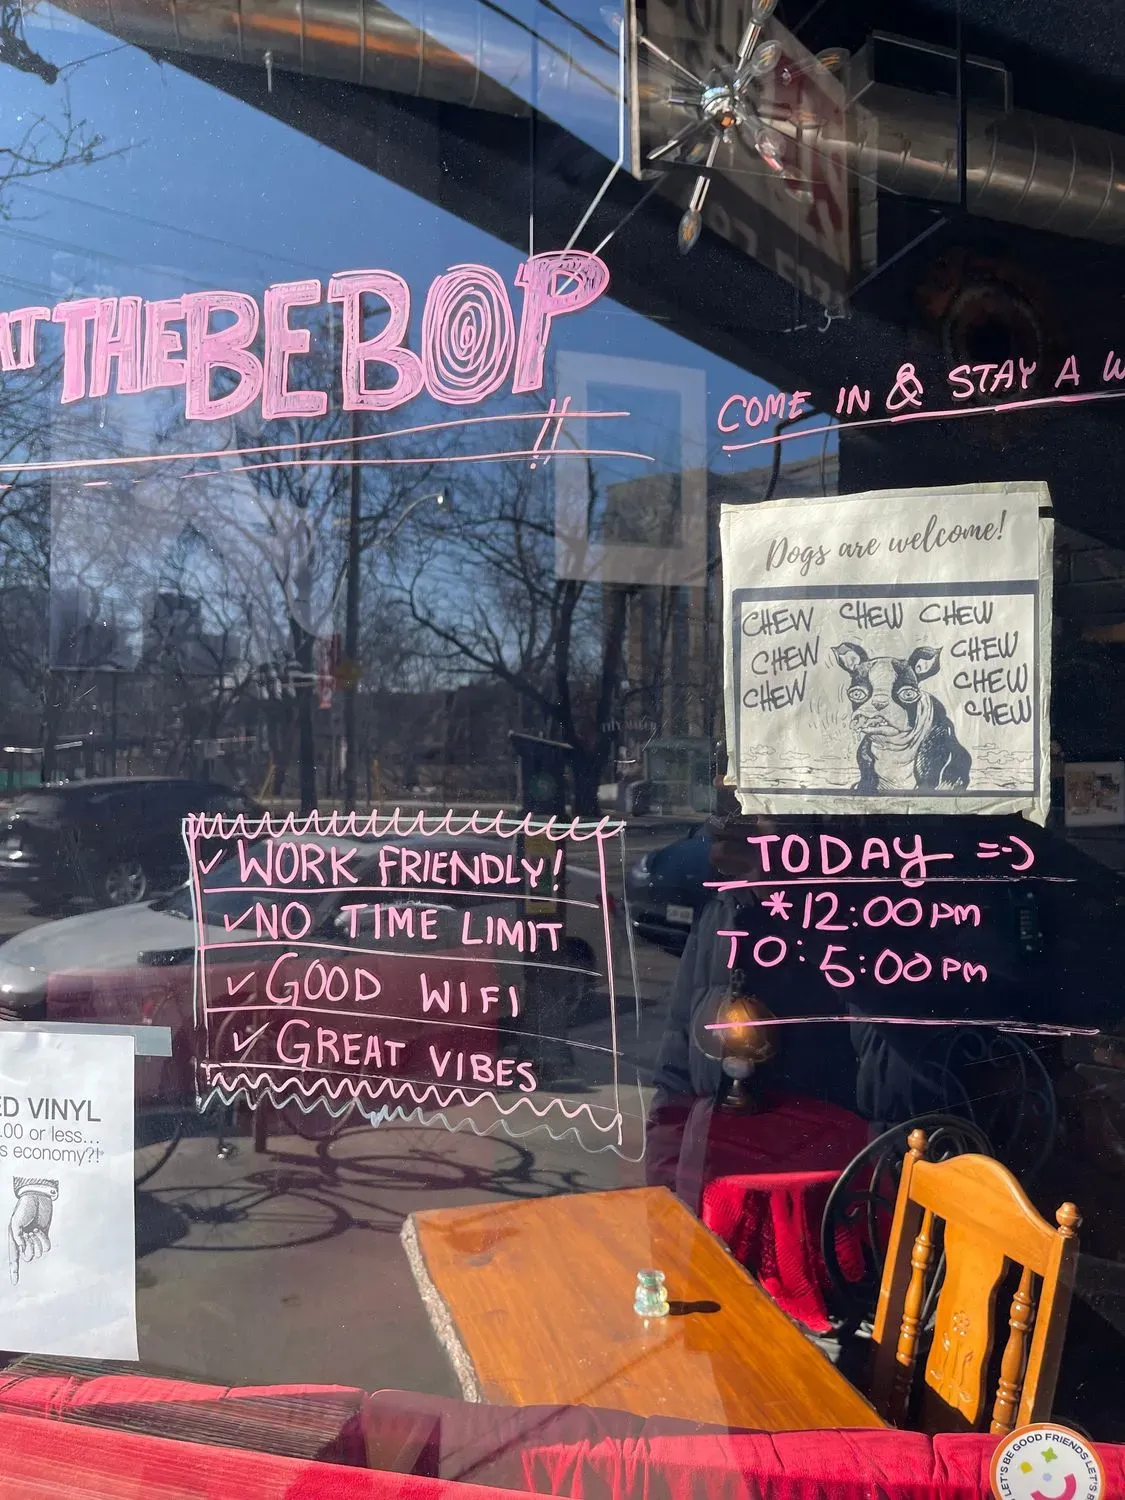 AT THE BEBOP!!
COME IN & STAY A
Dogs are welcome!
CHEW CHEW CHEW
CHEW CHEW
CHEW CHEW
CHEW
TODAY =-)
*12:00pm
TO: 5:00pm
✓ WORK FRIENDLY!
✓ NO TIME LIMIT
✓ GOOD WIFI
✓ GREAT VIBES
ED VINYL
.00 or less...
s economy?!
LET'S BE GOOD FRIENDS LET'S